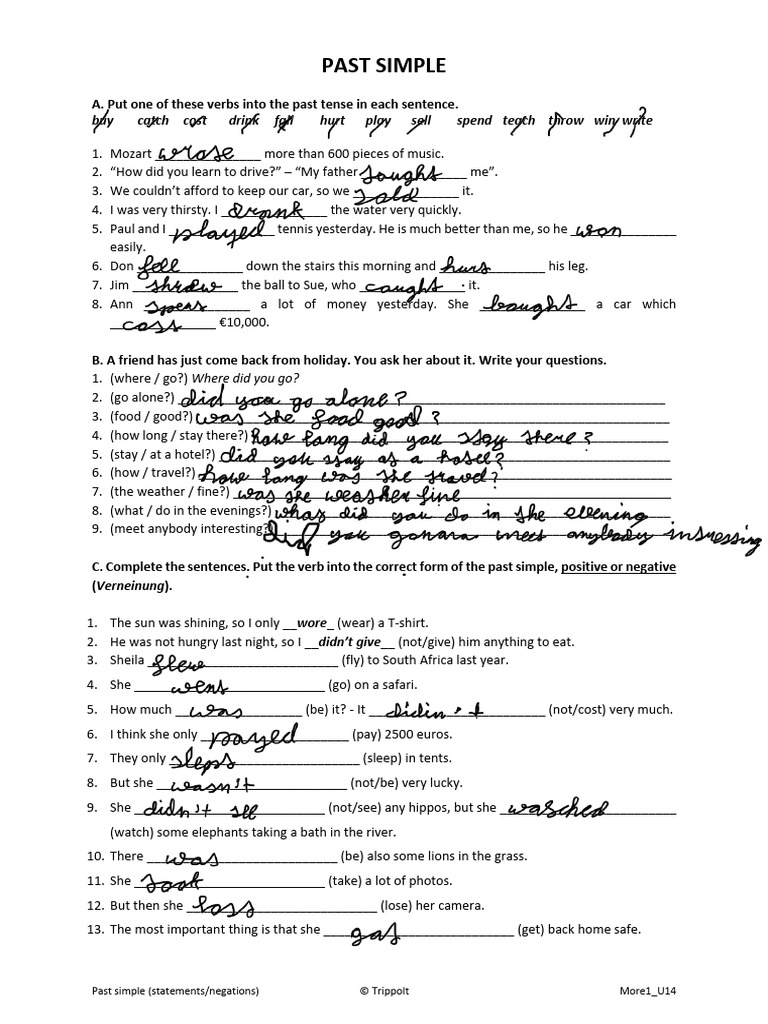 PAST SIMPLE
A. Put one of these verbs into the past tense in each sentence.
buy catch cost drink fall hurt play sell spend teach throw win write
1. Mozart wrote more than 600 pieces of music.
2. “How did you learn to drive?” – “My father tought me”.
3. We couldn’t afford to keep our car, so we sold it.
4. I was very thirsty. I drank the water very quickly.
5. Paul and I played tennis yesterday. He is much better than me, so he won
easily.
6. Don fell down the stairs this morning and hurt his leg.
7. Jim threw the ball to Sue, who caught it.
8. Ann spent a lot of money yesterday. She bought a car which
cost €10,000.
B. A friend has just come back from holiday. You ask her about it. Write your questions.
1. (where / go?) Where did you go?
2. (go alone?) did you go alone?
3. (food / good?) was the food good?
4. (how long / stay there?) how long did you stay there?
5. (stay / at a hotel?) did you stay at a hotel?
6. (how / travel?) how long was the travel?
7. (the weather / fine?) was the weather fine
8. (what / do in the evenings?) what did you do in the evening
9. (meet anybody interesting?) did you meet anybody intressing
C. Complete the sentences. Put the verb into the correct form of the past simple, positive or negative
(Verneinung).
1. The sun was shining, so I only __wore_ (wear) a T-shirt.
2. He was not hungry last night, so I __didn’t give__ (not/give) him anything to eat.
3. Sheila flew (fly) to South Africa last year.
4. She went (go) on a safari.
5. How much was (be) it? - It didin't (not/cost) very much.
6. I think she only payed (pay) 2500 euros.
7. They only sleps (sleep) in tents.
8. But she wasn't (not/be) very lucky.
9. She didn't see (not/see) any hippos, but she watched
(watch) some elephants taking a bath in the river.
10. There was (be) also some lions in the grass.
11. She took (take) a lot of photos.
12. But then she lost (lose) her camera.
13. The most important thing is that she got (get) back home safe.
Past simple (statements/negations) © Trippolt More1_U14